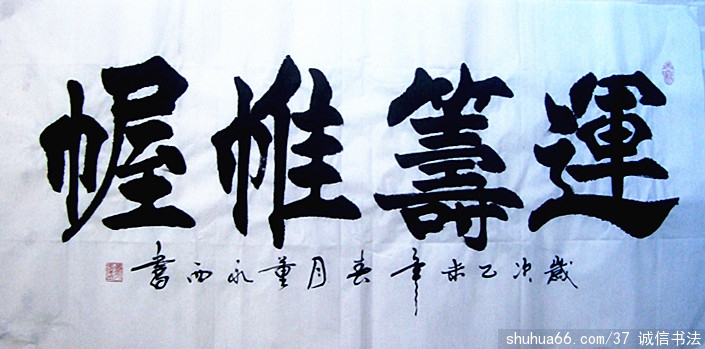 運籌帷幄
歲次乙未年春月董永西書
shuhua66.com/37 诚信书法